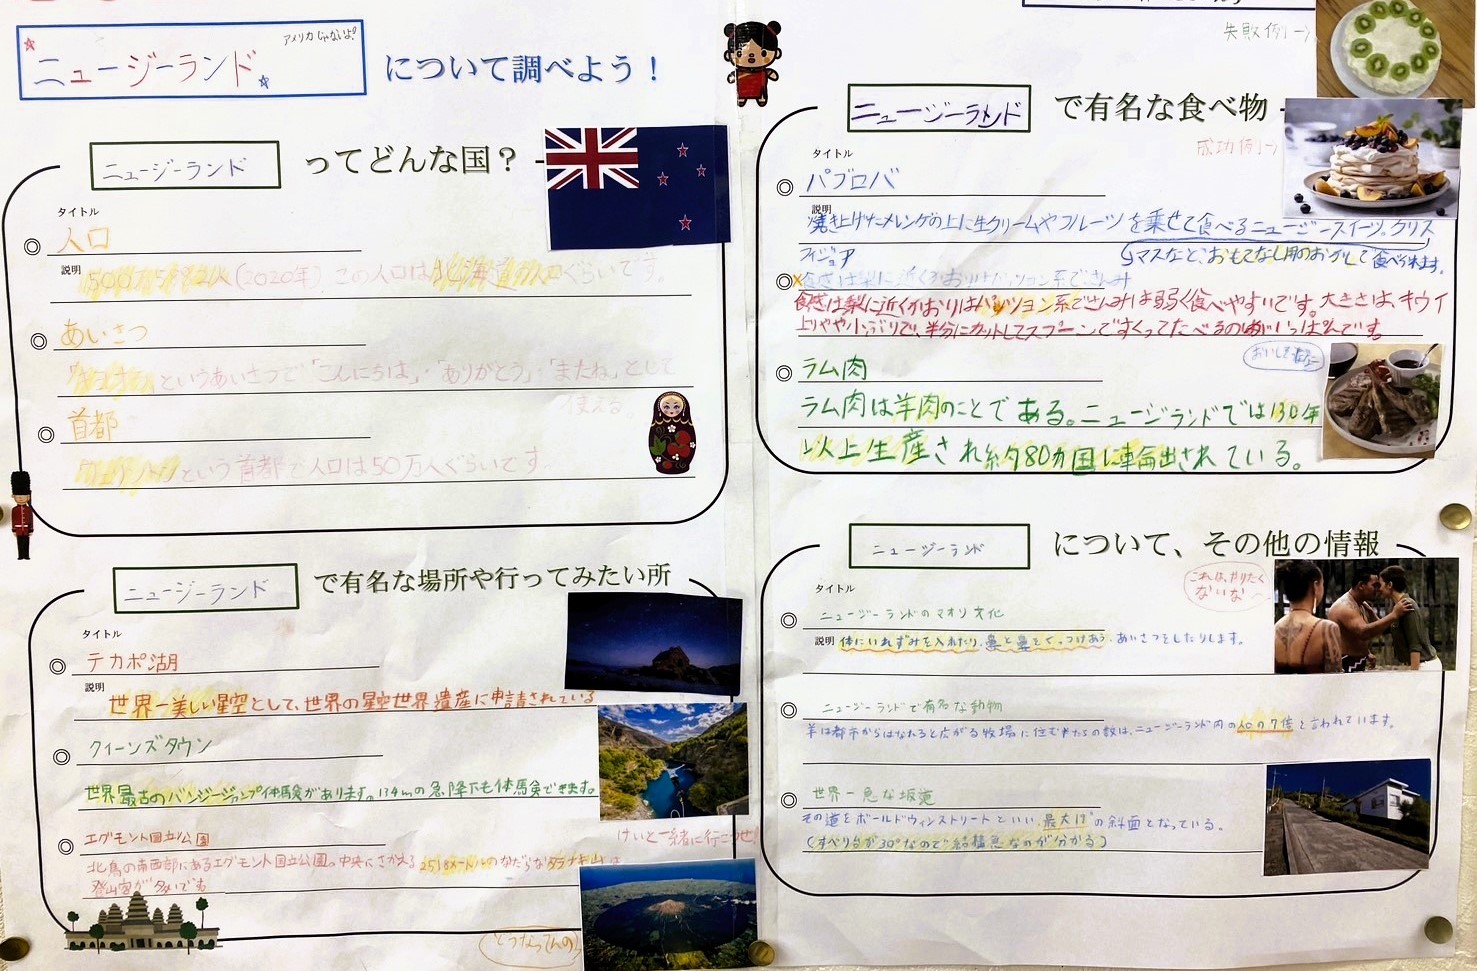 アメリカじゃないよ!
ニュージーランド
について調べよう!
ニュージーランド
ってどんな国?
タイトル
人口
説明
500万5892人(2020年)この人口は北海道の人口ぐらいです。
あいさつ
というあいさつで「こんにちは」・「ありがとう」・「またね」として
使える
首都
ウェリントンという首都で人口は50万人ぐらいです
ニュージーランド
で有名な場所や行ってみたい所
タイトル
テカポ湖
説明
世界一美しい星空として、世界の星空世界遺産に申請されている
クィーンズタウン
世界最古のバンジージャンプ体験があります。134mの急降下も体験できます。
エグモント国立公園
けいと一緒に行こうぜ
北島の南西部にあるエグモント国立公園。中央にそびえる2518メートルのなだらなタラナキ山は
登山客が多いです
どうなってんの
失敗例→
ニュージーランド
で有名な食べ物
成功例→
タイトル
パブロバ
説明
焼き上げたメレンゲの上に生クリームやフルーツを乗せて食べるニュージースイーツ。クリス
マスなど、おもてなし用のおかしして食べられます。
フィジョア
食感は梨に近くかおりはパッション系でさんみ
食感は梨に近くかおりはパッション系でさんみは弱く食べやすいです。大きさは、キウイ
よりやや小ぶりで、半分にカットしてスプーンですくってたべるのがいっぱんです。
ラム肉
ラム肉は羊肉のことである。ニュージランドでは130年
以上生産され約80カ国に輸出されている。
ニュージーランド
について、その他の情報
これは、やりたく
ないな〜
タイトル
ニュージーランドのマオリ文化
説明
体にいれずみを入れたり、鼻と鼻をくっつけあう、あいさつをしたりします。
ニュージーランドで有名な動物
羊は都市からはなれると広がる牧場に住む羊たちの数は、ニュージーランド内の人口の7倍と言われています。
世界一急な坂道
その道をボールドウィンストリートといい、最大19°の斜面となっている。
(すべり台が30°なので結構急なのが分かる)